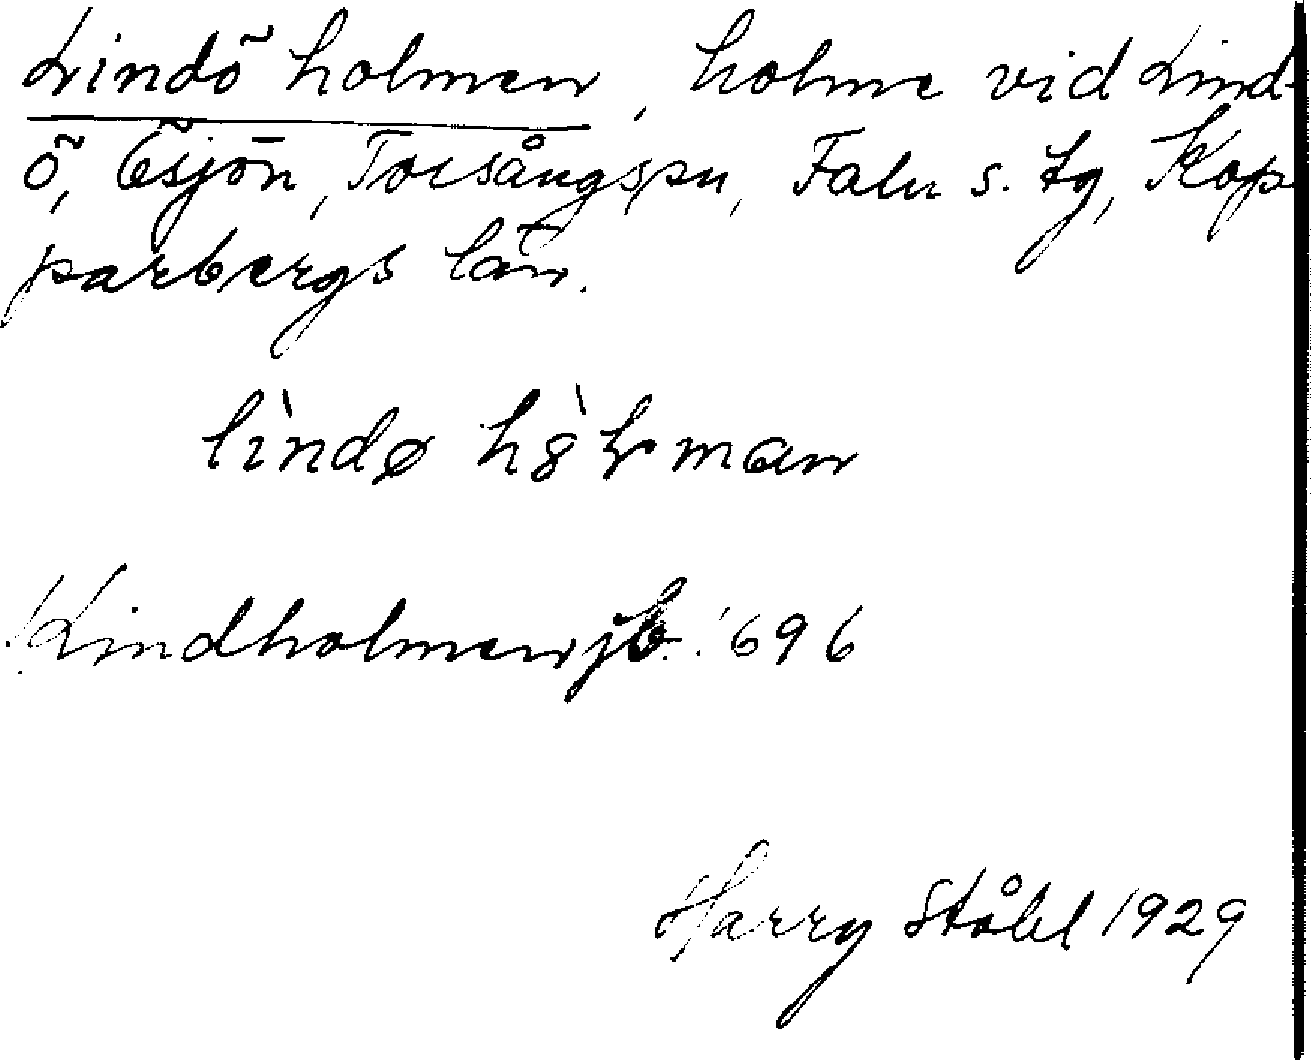 Lindö holmen, holme vid Lind-
ö, Ösjön, Torsångs sn, Falu s. tg, Kop-
parbergs län.
lìndø hò̱ɽman
Lindholmen jb. 1696
Harry Ståhl 1929